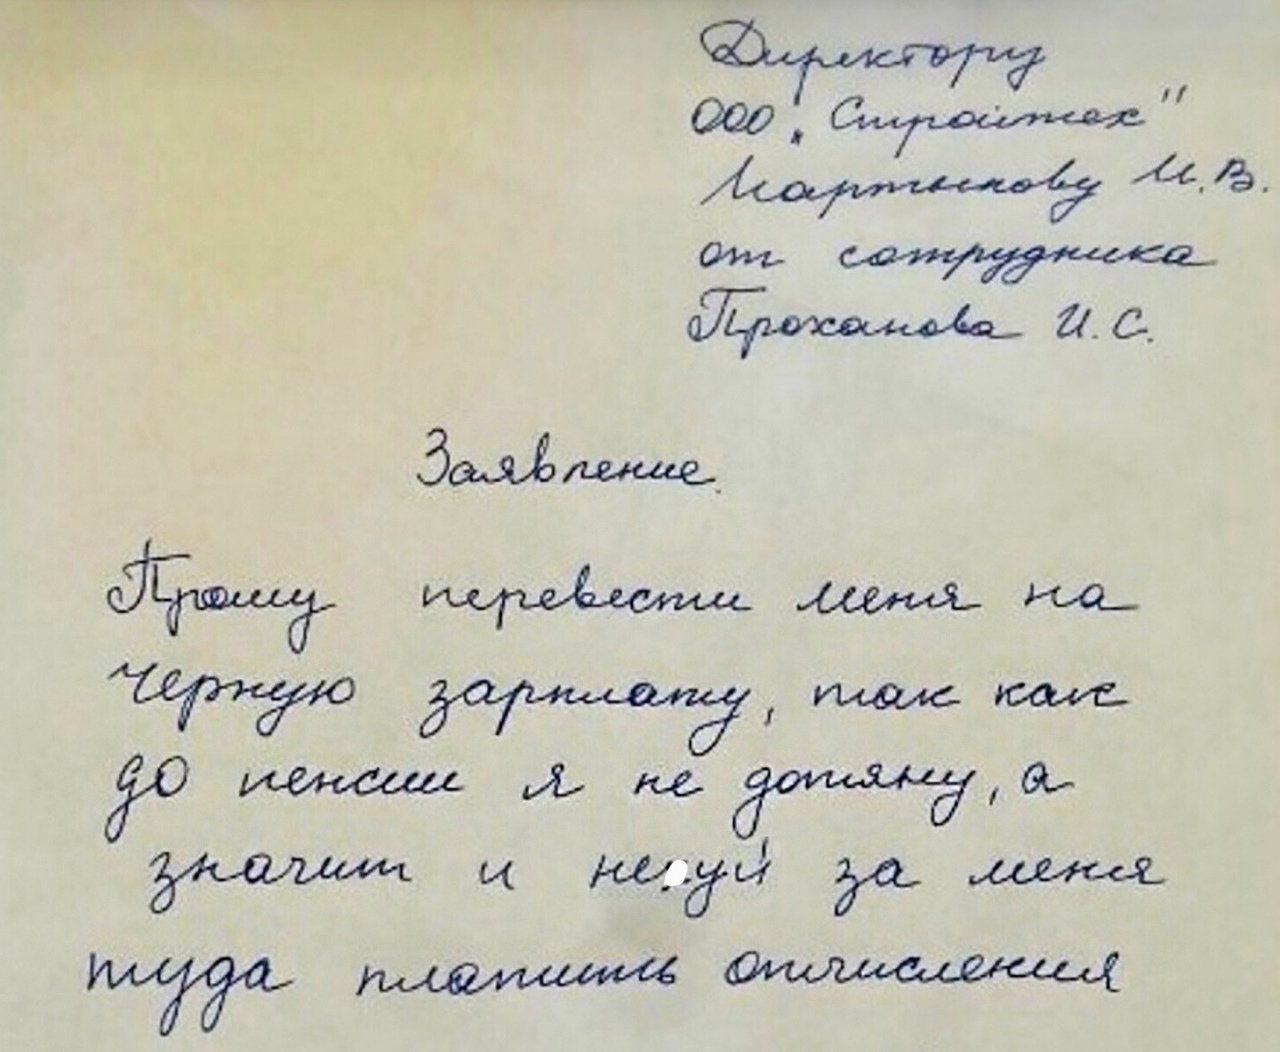 Директору
ООО „Стройтех"
Мартынову И.В.
от сотрудника
Проханова И.С.
Заявление.
Прошу перевести меня на
черную зарплату, так как
до пенсии я не дотяну, а
значит и нехуй за меня
туда платить отчисления